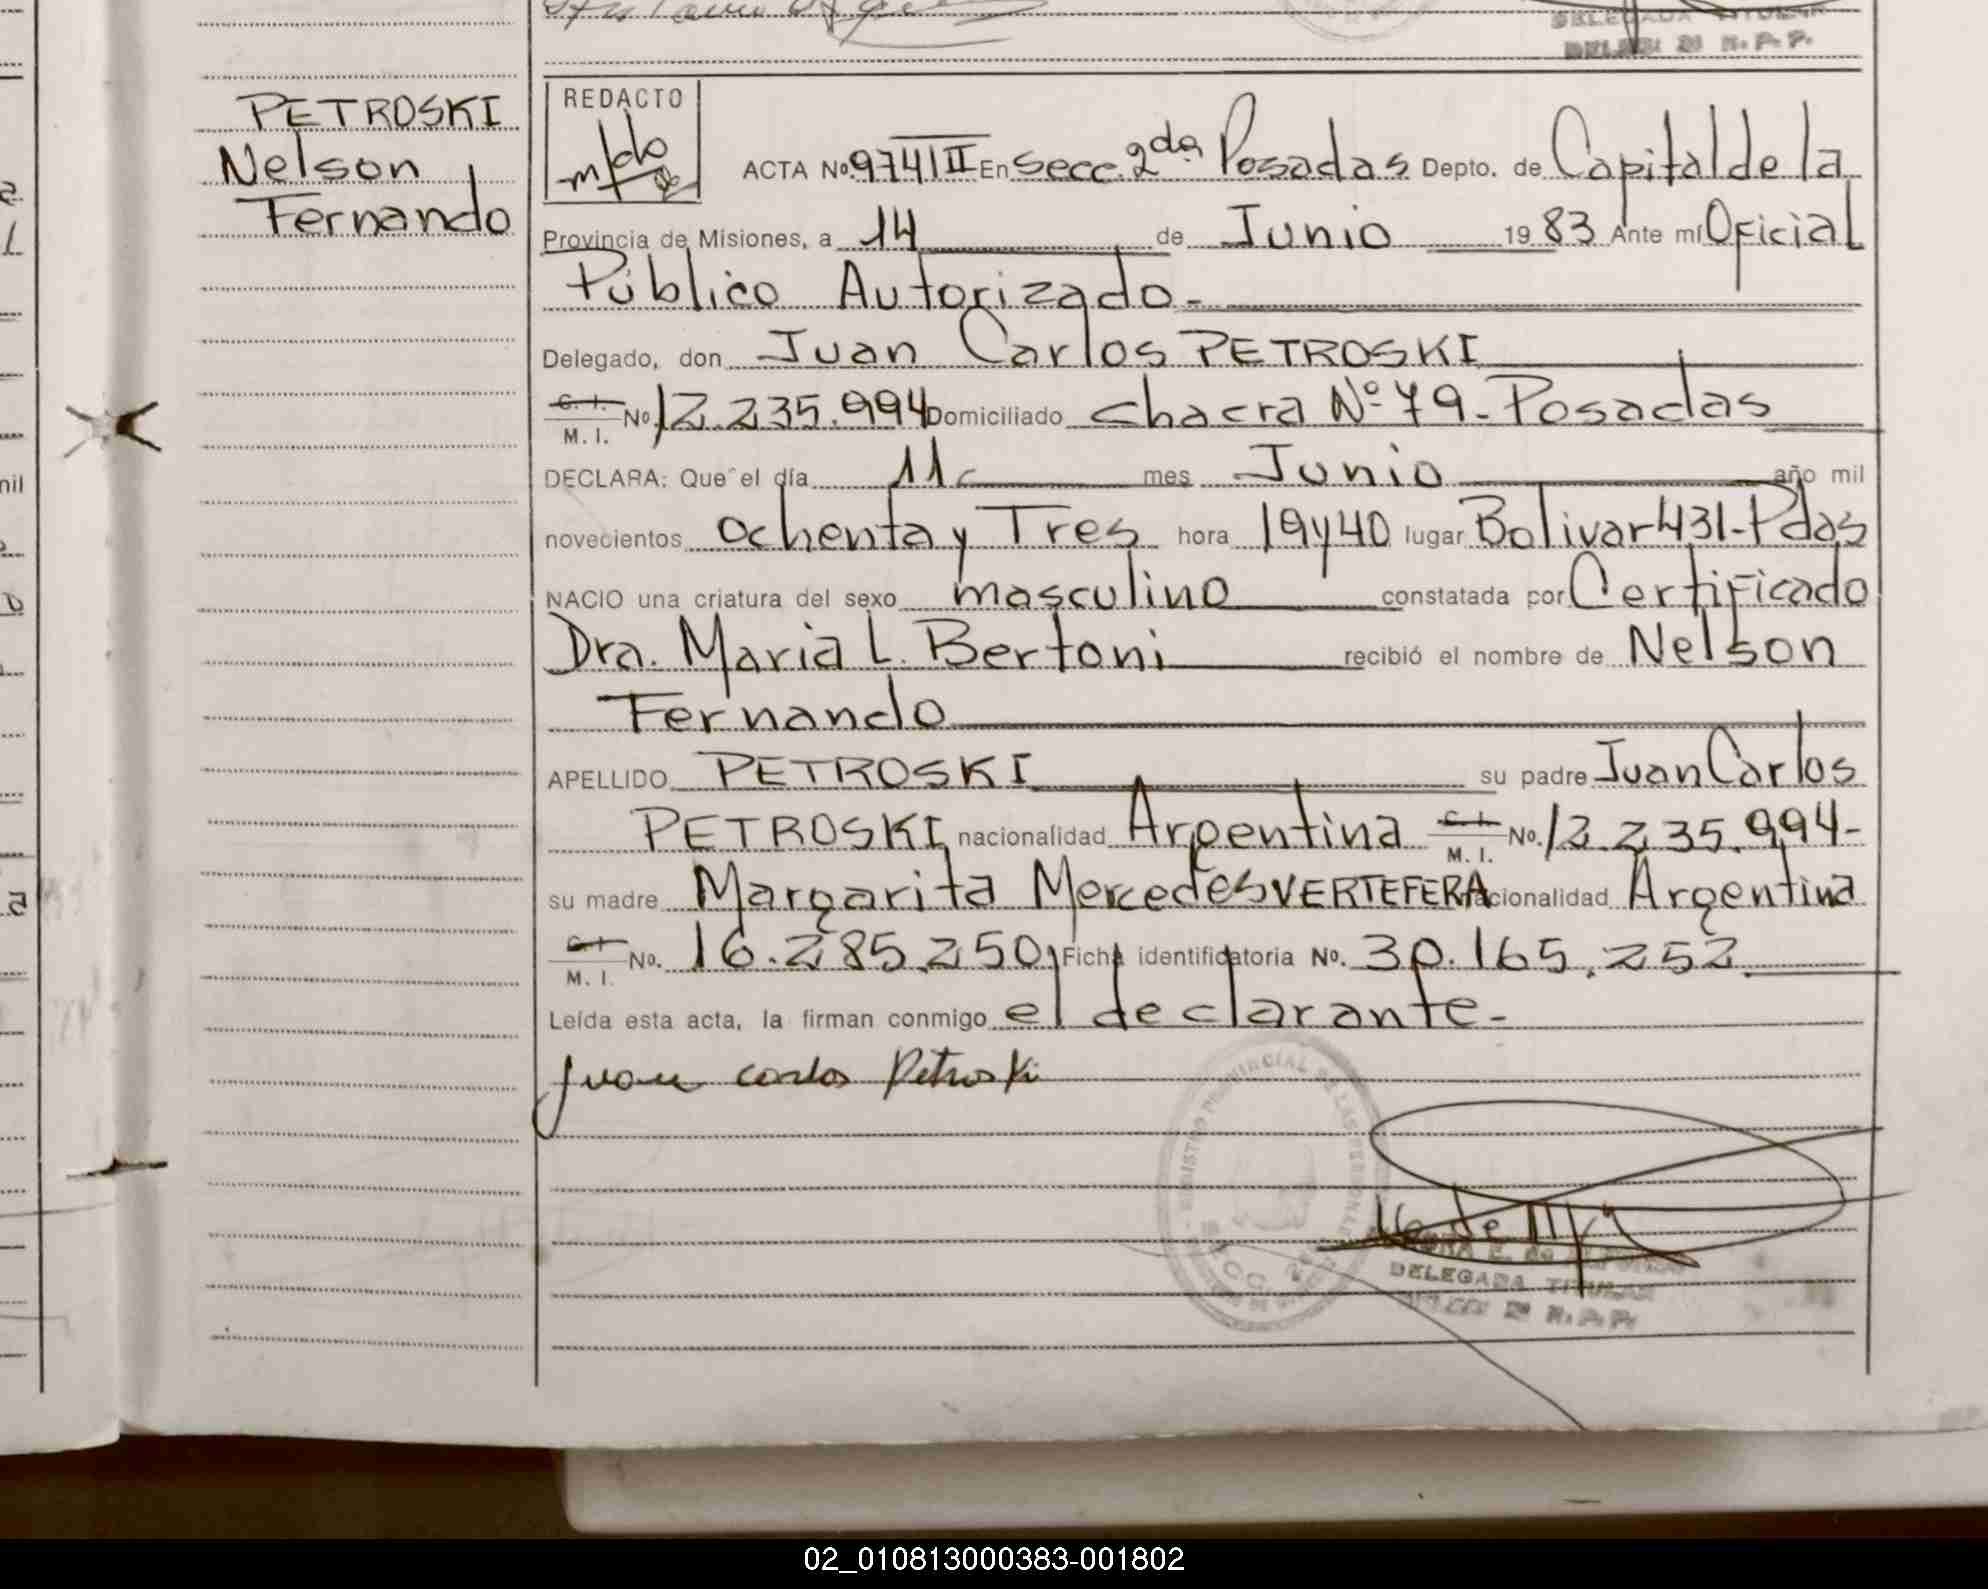 DELEGADA TITULAR
R. P. P.
PETROSKI
Nelson
Fernando
REDACTO
ACTA No. 974 II En Secc. 2da Posadas Depto. de Capital de la
Provincia de Misiones, a 14 de Junio 1983 Ante mí Oficial
Público Autorizado.-
Delegado, don Juan Carlos PETROSKI
C. I. M. I. No. 12.235.994 Domiciliado chacra Nº 79 - Posadas
DECLARA: Que el día 11 mes Junio año mil
novecientos ochenta y Tres hora 19 y 40 lugar Bolivar 431 - Pdas
NACIO una criatura del sexo masculino constatada por Certificado
Dra. Maria L. Bertoni recibió el nombre de Nelson
Fernando
APELLIDO PETROSKI su padre Juan Carlos
PETROSKI nacionalidad Argentina C. I. M. I. No. 12.235.994-
su madre Margarita Mercedes VERTEFERA nacionalidad Argentina
C. I. M. I. No. 16.285.250, Ficha identificatoria No. 30.165.252
Leída esta acta, la firman conmigo el declarante.-
Juan carlos Petroski
REGISTRO PROVINCIAL DE LAS PERSONAS
DELEGADA TITULAR
R. P. P.
02_010813000383-001802